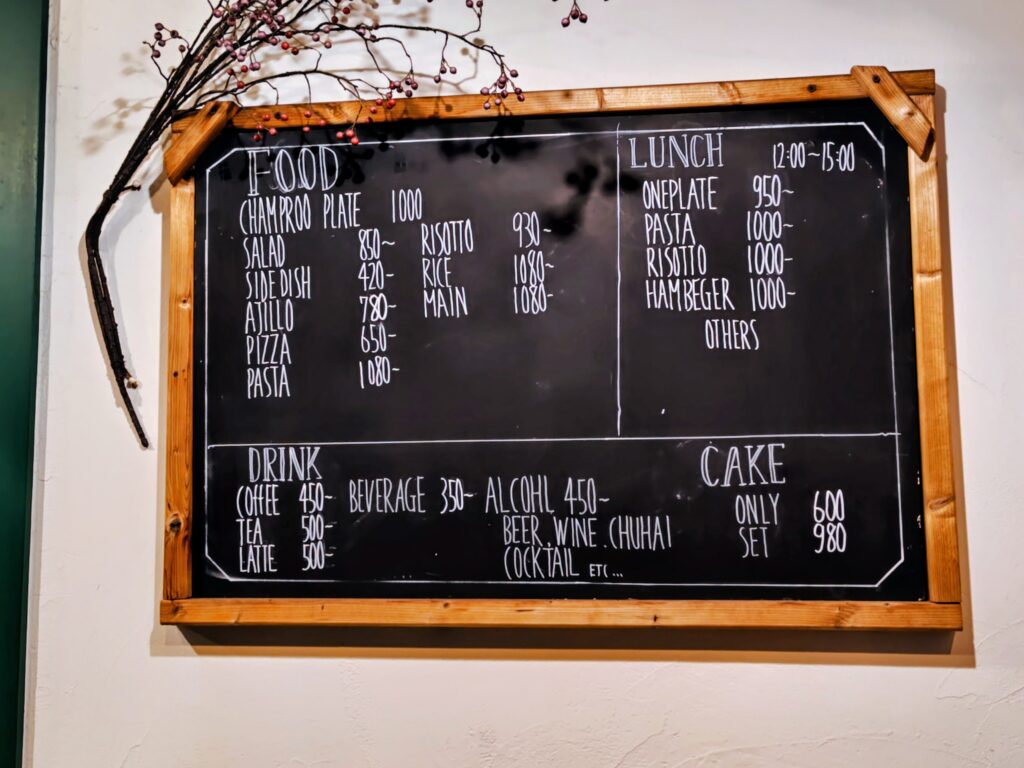 FOOD
CHAMPROO PLATE 1000
SALAD 850~
SIDE DISH 420~
AJILLO 780~
PIZZA 650~
PASTA 1080~
RISOTTO 930~
RICE 1080~
MAIN 1080~
LUNCH 12:00~15:00
ONEPLATE 950~
PASTA 1000~
RISOTTO 1000~
HAMBEGER 1000~
OTHERS
DRINK
COFFEE 450~
TEA 500~
LATTE 500~
BEVERAGE 350~
ALCOHL 450~
BEER, WINE. CHUHAI
COCKTAIL ETC...
CAKE
ONLY 600
SET 980